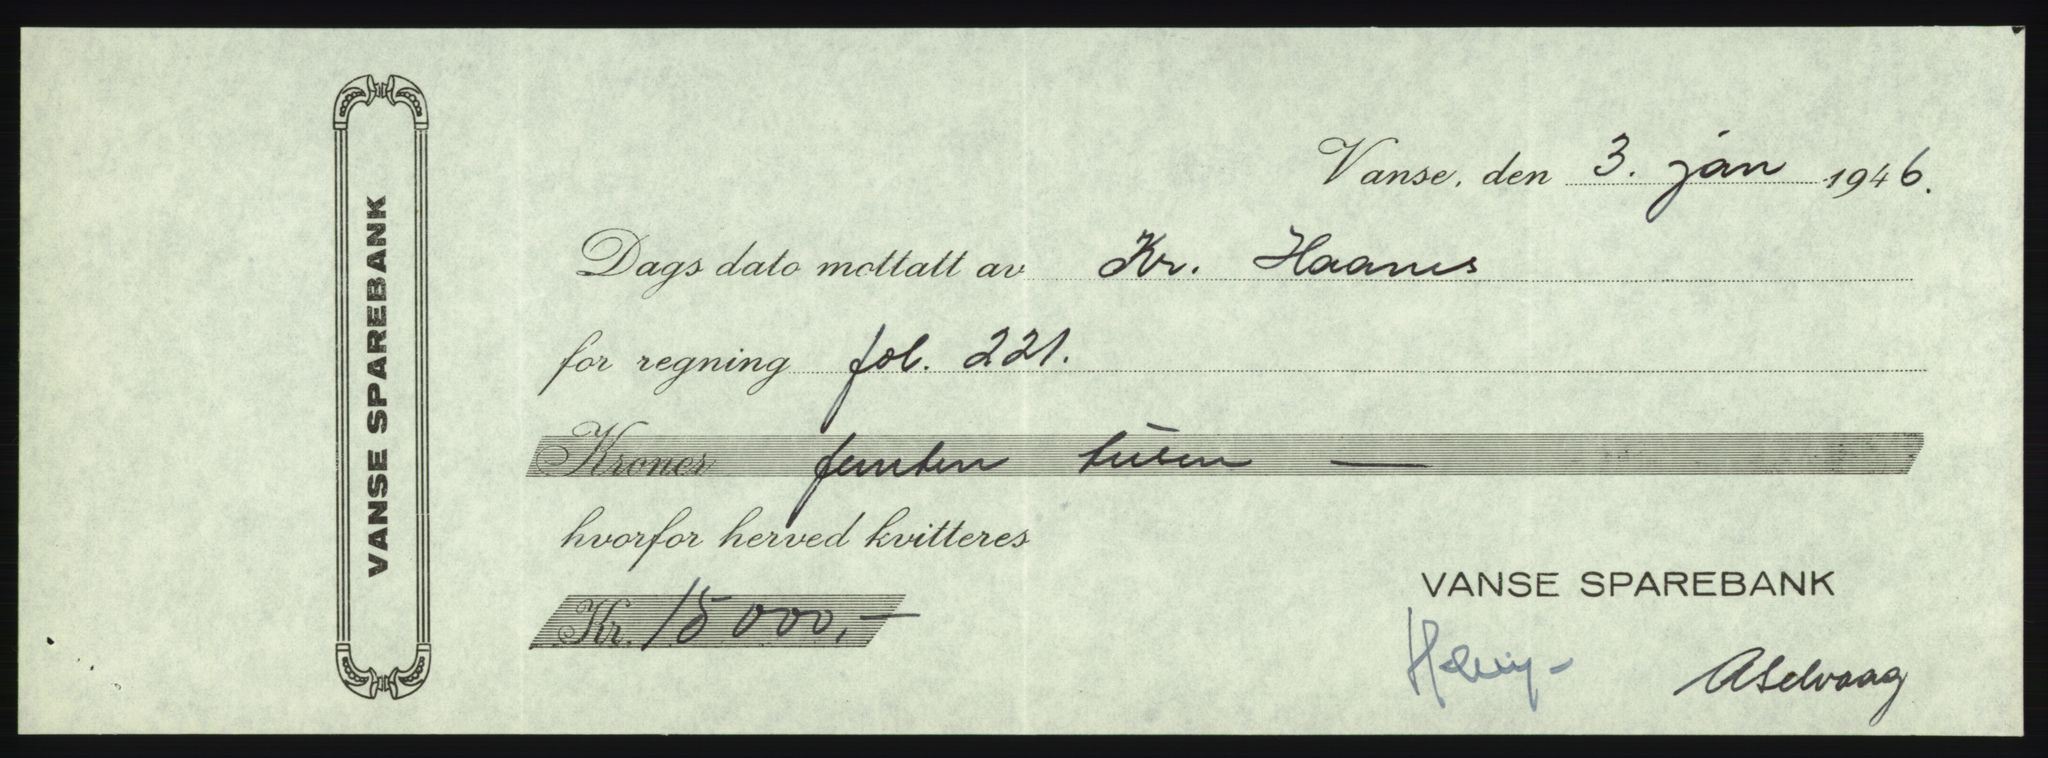 VANSE SPAREBANK
Vanse, den 3. jan 1946.
Dags dato mottatt av Kr. Haanes
for regning fol. 221.
Kroner femten tusen —
hvorfor herved kvitteres
Kr. 15 000,-
VANSE SPAREBANK